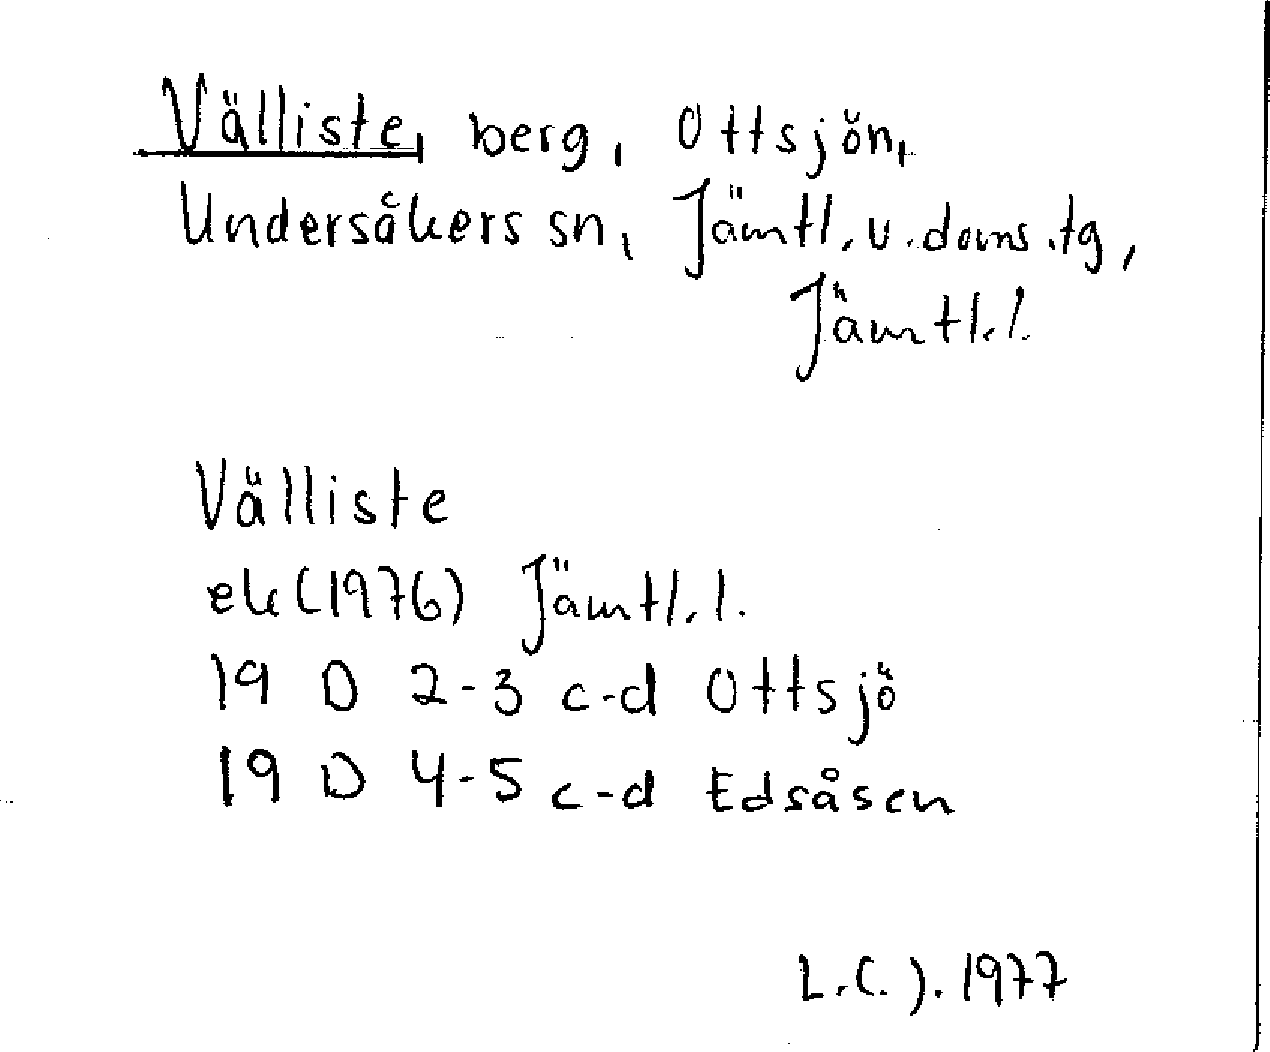 Välliste, berg, Ottsjön,
Undersåkers sn, Jämtl. v. doms. tg,
Jämtl. l.
Välliste
ek (1976) Jämtl. l.
19 D 2-3 c-d Ottsjö
19 D 4-5 c-d Edsåsen
L.C.J. 1977